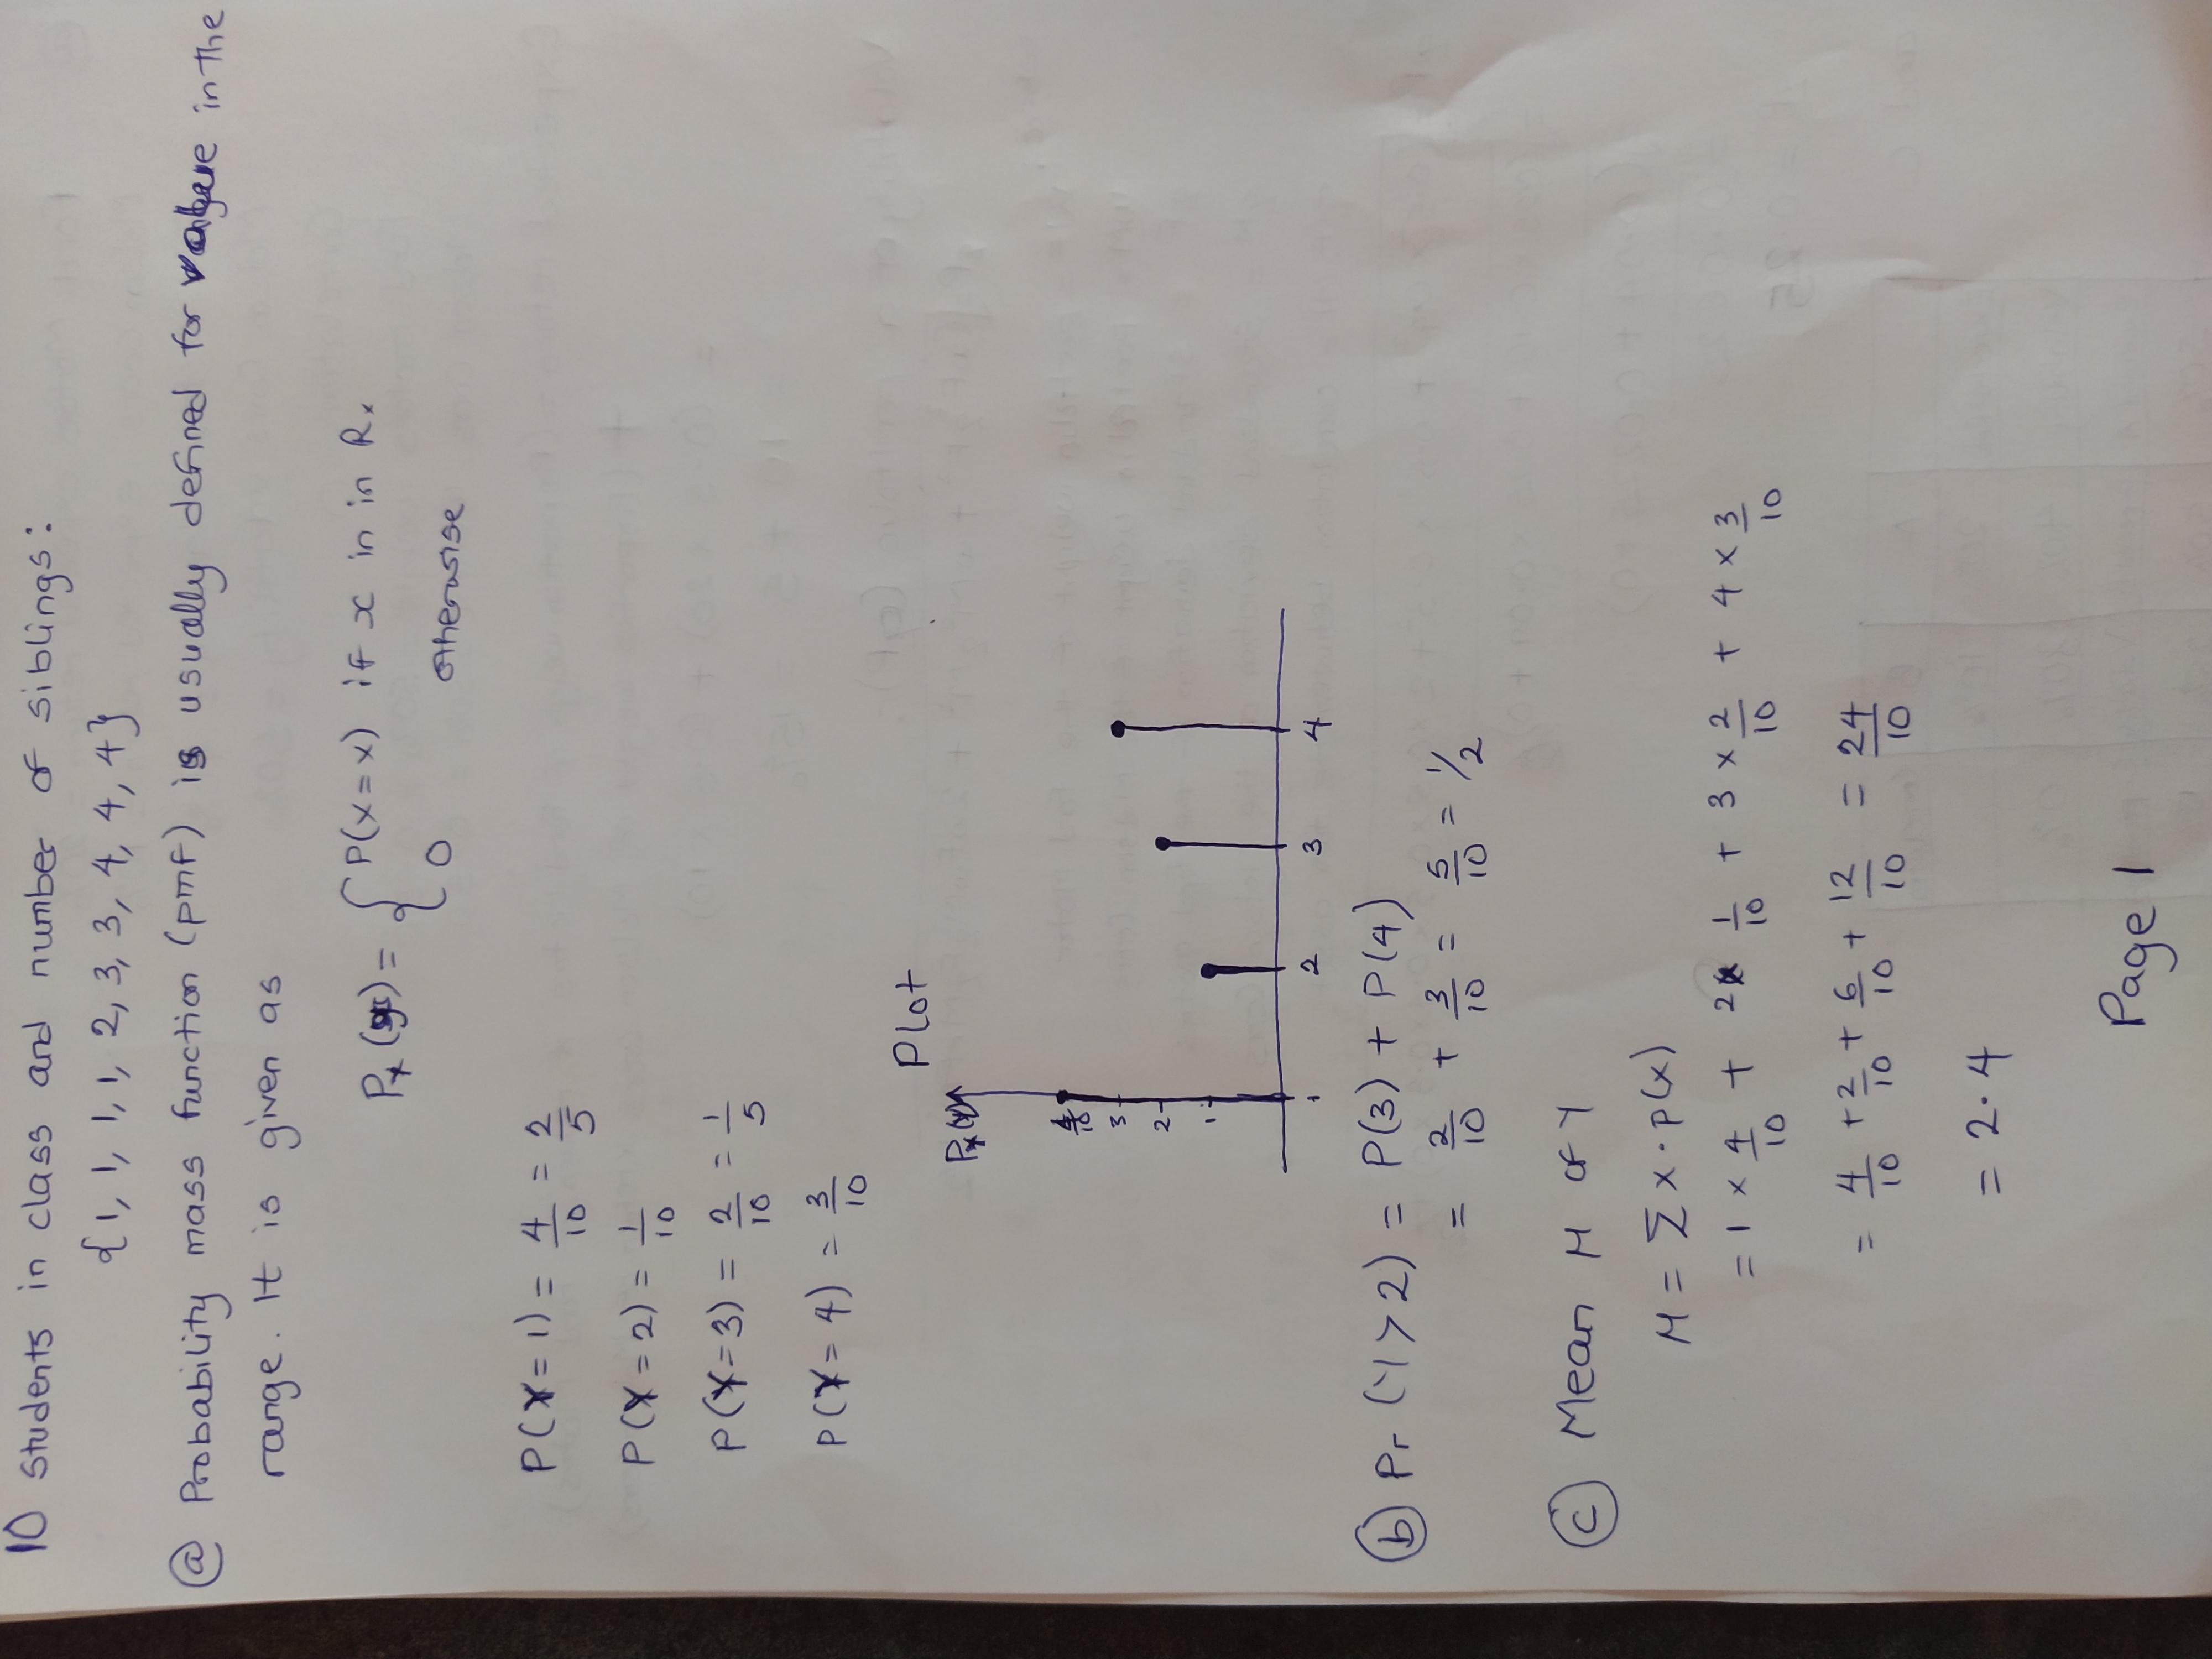 10 Students in class and number of siblings:
{1, 1, 1, 1, 2, 3, 3, 4, 4, 4}
(a) Probability mass function (pmf) is usually defined for in the
range. It is given as
= { P(x=x) if x in in Rx
0 otherwise
P(Y=1) = 4/10 = 2/5
P(Y=2) = 1/10
P(Y=3) = 2/10 = 1/5
P(Y=4) = 3/10
Plot
4/10
3
2
1
1 2 3 4
(b) Pr (Y>2) = P(3) + P(4)
= 2/10 + 3/10 = 5/10 = 1/2
(c) Mean M of Y
M = Σ x · P(x)
= 1 × 4/10 + 2 × 1/10 + 3 × 2/10 + 4 × 3/10
= 4/10 + 2/10 + 6/10 + 12/10 = 24/10
= 2.4
Page 1